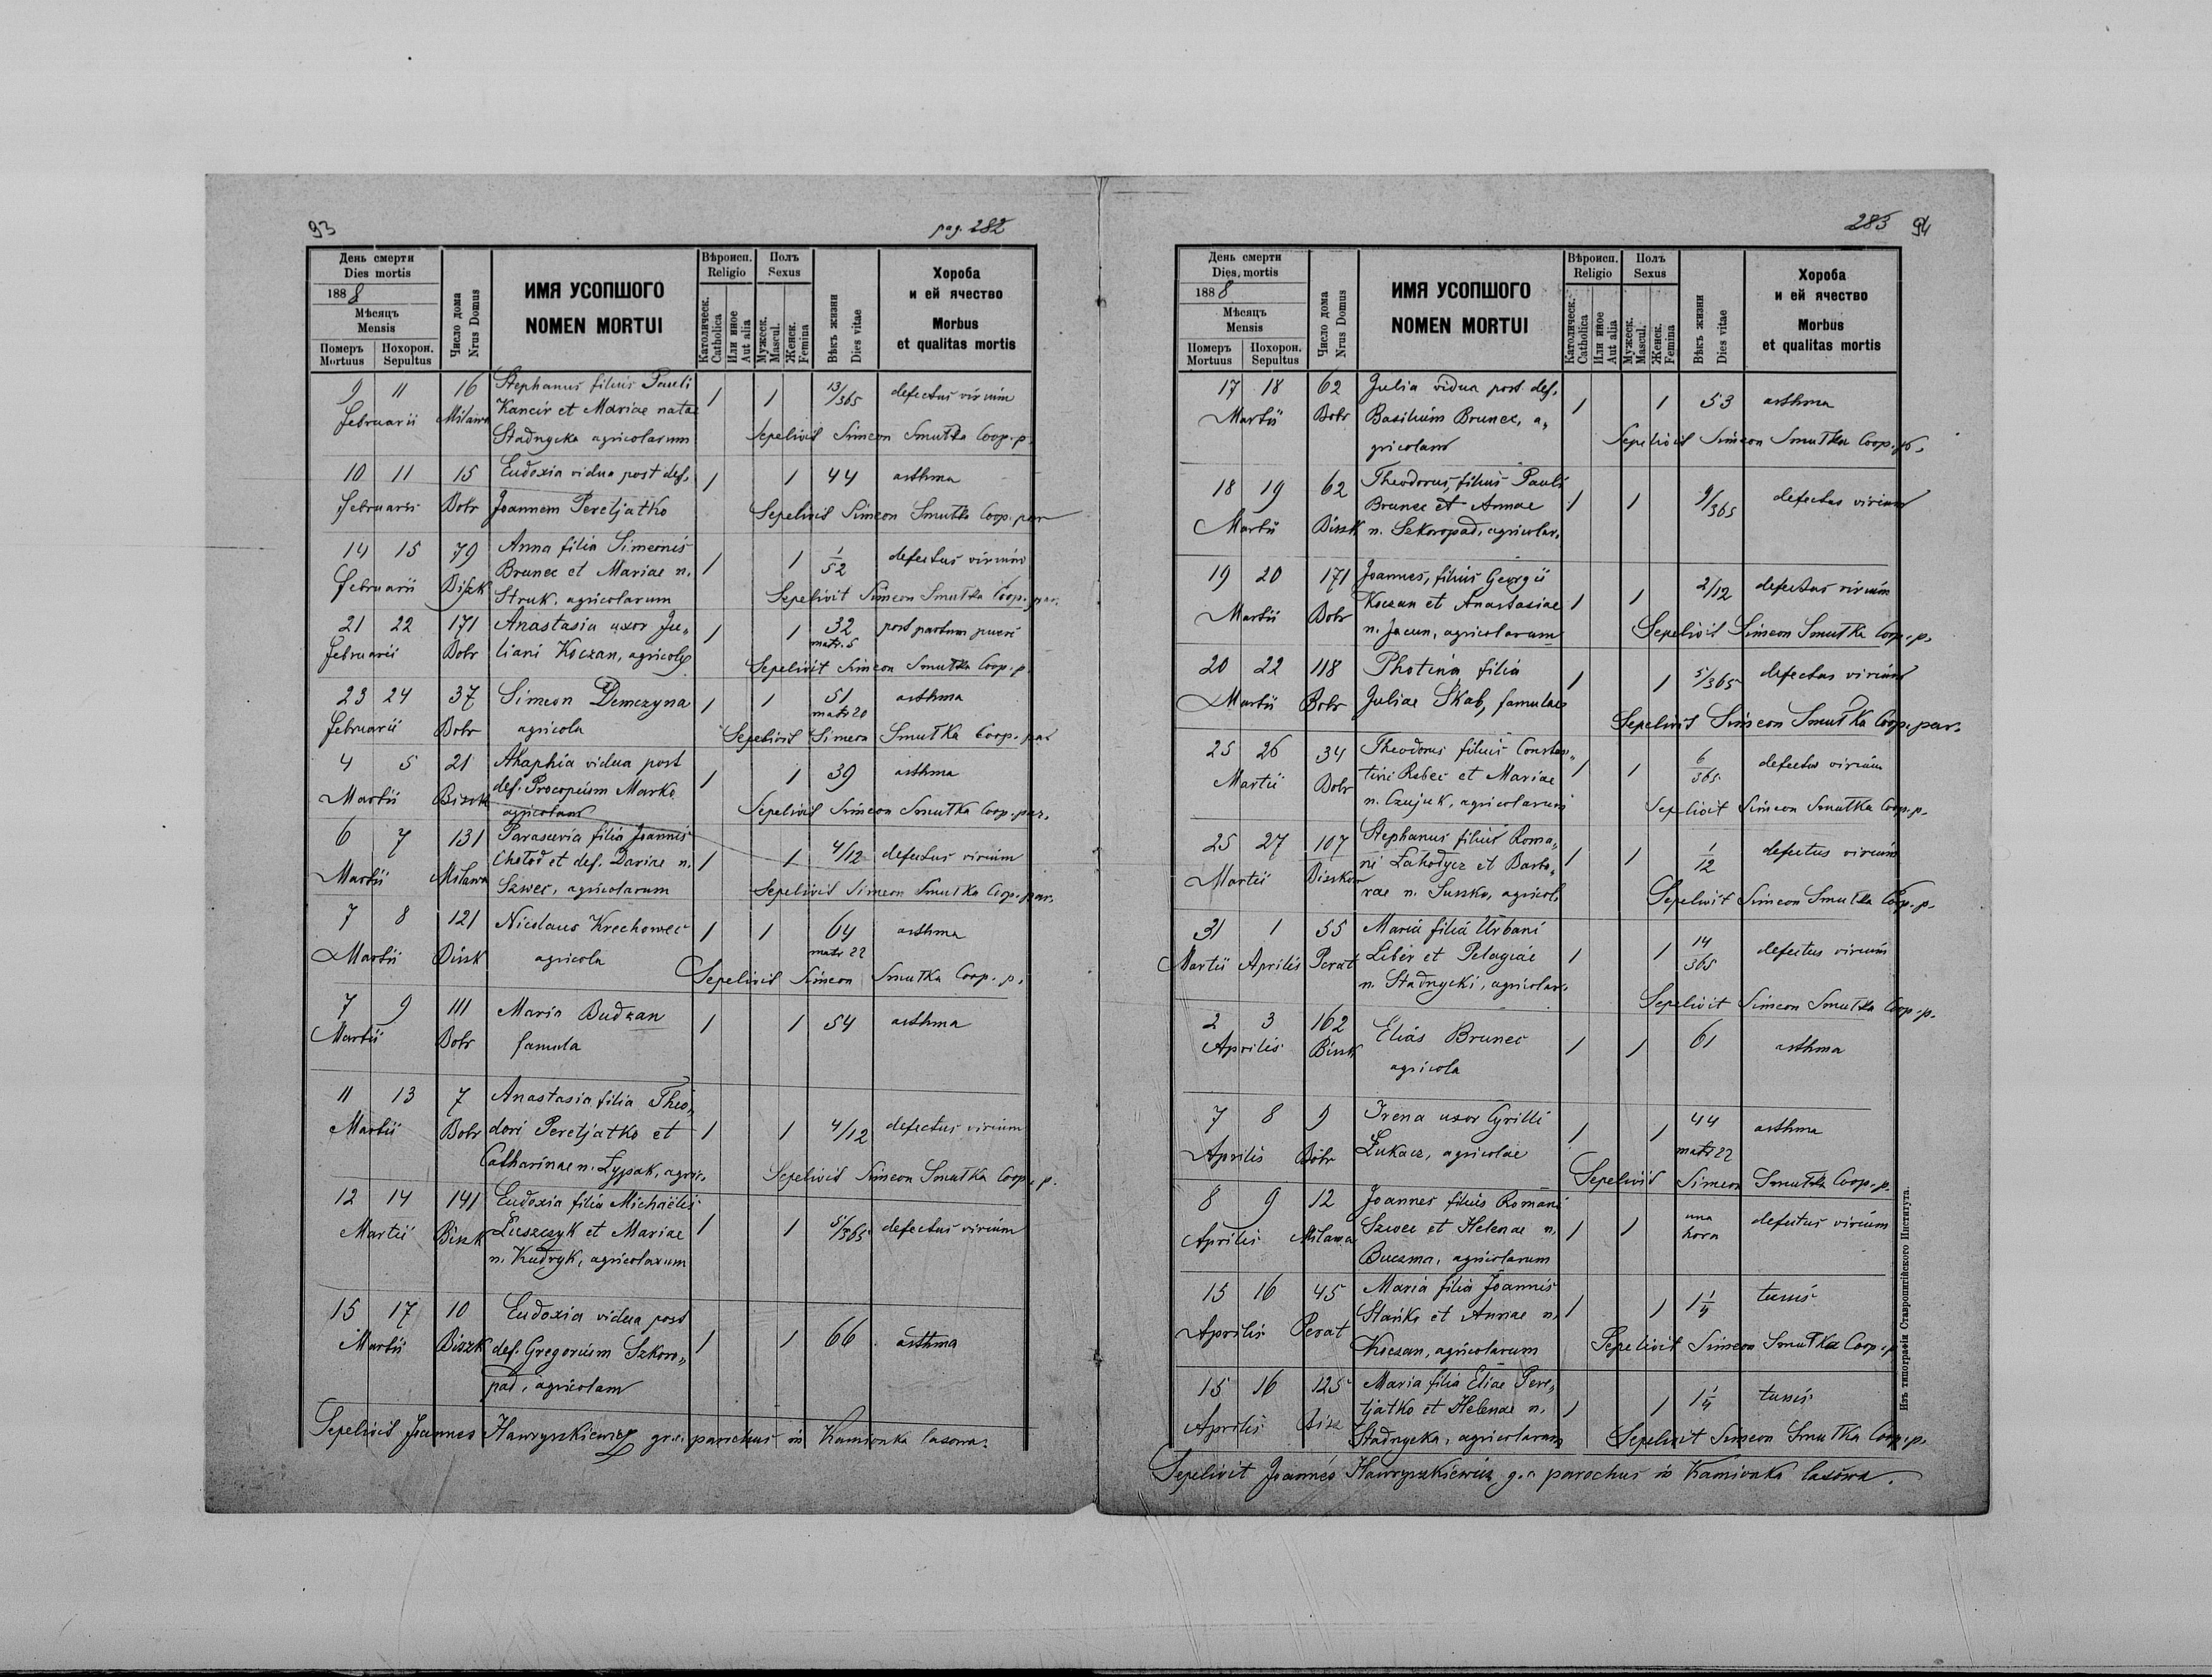 93
pag. 282
День смерти
Dies mortis
1888
Мѣсяцъ
Mensis
Померъ
Mortuus
Похорон.
Sepultus
Число дома
Nrus Domus
ИМЯ УСОПШОГО
NOMEN MORTUI
Вѣроисп.
Religio
Католическ.
Catholica
Или иное
Aut alia
Полъ
Sexus
Мужеск.
Mascul.
Женск.
Femina
Вѣкъ жизни
Dies vitae
Хороба
и ей ячество
Morbus
et qualitas mortis
9 11 16 Stephanus filius Pauli 1 1 13/365 defectus virium
Februarii Milawa Kancir et Mariae natae
Stadnycka agricolarum Sepelivit Simeon Smutka Coop. p.
10 11 15 Eudoxia vidua post def. 1 1 44 asthma
Februarii Bobr Joannem Peretjatko Sepelivit Simeon Smutka Coop. par
14 15 79 Anna filia Simeonis 1 1 1/52 defectus virium
Februarii Biszk Brunec et Mariae n.
Struk, agricolarum Sepelivit Simeon Smutka Coop. par.
21 22 171 Anastasia uxor Ju„ 1 1 32 post partum pueri
Februarii Bobr liani Koczan, agricolae matr. 5
Sepelivit Simeon Smutka Coop. p.
23 24 37 Simeon Demczyna 1 1 51 asthma
Februarii Bobr agricola matr 20
Sepelivit Simeon Smutka Coop. par
4 5 21 Ahaphia vidua post 1 1 39 asthma
Martii Biszk def. Procopium Marko
agricolam Sepelivit Simeon Smutka Coop. par.
6 7 131 Parascevia filia Joannis 1 1 4/12 defectus virium
Martii Milawa Chołod et def. Dariae n.
Szwec, agricolarum Sepelivit Simeon Smutka Coop. par.
7 8 121 Nicolaus Krechowec 1 1 64 asthma
Martii Biszk agricola matr 22
Sepelivit Simeon Smutka Coop. p.
7 9 111 Maria Budzan 1 1 54 asthma
Martii Bobr famula
11 13 7 Anastasia filia Theo„
Martii Bobr dori Peretjatko et 1 1 4/12 defectus virium
Catharinae n. Łypak, agric. Sepelivit Simeon Smutka Coop. p.
12 14 141 Eudoxia filia Michaëlis
Martii Biszk Leszczyk et Mariae 1 1 5/365 defectus virium
n. Kudryk, agricolarum
15 17 10 Eudoxia vidua post
Martii Biszk def. Gregorium Szkoro„ 1 1 66 asthma
pad, agricolam
Sepelivit Joannes Hawryszkiewicz gr. c. parochus in Kamionka lasowa.
283 94
День смерти
Dies mortis
1888
Мѣсяцъ
Mensis
Померъ
Mortuus
Похорон.
Sepultus
Число дома
Nrus Domus
ИМЯ УСОПШОГО
NOMEN MORTUI
Вѣроисп.
Religio
Католическ.
Catholica
Или иное
Aut alia
Полъ
Sexus
Мужеск.
Mascul.
Женск.
Femina
Вѣкъ жизни
Dies vitae
Хороба
и ей ячество
Morbus
et qualitas mortis
17 18 62 Julia vidua post def. 1 1 53 asthma
Martii Bobr Basilium Brunec, a„
gricolam Sepelivit Simeon Smutka Coop. p.
18 19 62 Theodorus, filius Pauli
Martii Biszk Brunec et Annae 1 1 9/365 defectus virium
n. Szkoropad, agricolar.
19 20 171 Joannes, filius Georgii
Martii Bobr Koczan et Anastasiae 1 1 2/12 defectus virium
n. Jacun, agricolarum Sepelivit Simeon Smutka Coop. p.
20 22 118 Photina filia 1 1 5/365 defectus virium
Martii Bobr Juliae Skab, famulae
Sepelivit Simeon Smutka Coop. par.
25 26 34 Theodorus filius Constan„
Martii Bobr tini Rabec et Mariae 1 1 6/365 defectus virium
n. Czujuk, agricolarum Sepelivit Simeon Smutka Coop. p.
25 27 107 Stephanus filius Roma„
Martii Biszkow ni Łahodycz et Barba„ 1 1 1/12 defectus virium
rae n. Suszko, agricol. Sepelivit Simeon Smutka Coop. p.
31 1 55 Maria filia Urbani
Martii Aprilis Perat Liber et Pelagiae 1 1 14/365 defectus virium
n. Stadnycki, agricolar. Sepelivit Simeon Smutka Coop. p.
2 3 162 Elias Brunec 1 1 61 asthma
Aprilis Biszk agricola
7 8 9 Irena uxor Cyrilli 1 1 44 asthma
Aprilis Bobr Łukacz, agricolae matr 22
Sepelivit Simeon Smutka Coop. p.
8 9 12 Joannes filius Romani
Aprilis Milawa Szwec et Helenae n. 1 1 una hora defectus virium
Buczma, agricolarum
15 16 45 Maria filia Joannis 1 1 1 1/4 tussis
Aprilis Perat Stańko et Annae n.
Koczan, agricolarum Sepelivit Simeon Smutka Coop. p
15 16 125 Maria filia Eliae Pere„ 1 1 1 1/4 tussis
Aprilis Bisz tjatko et Helenae n.
Stadnycka, agricolarum Sepelivit Simeon Smutka Coop. p.
Sepelivit Joannes Hawryszkiewicz, g. c. parochus in Kamionka lasowa.
Изъ типографіи Ставропигійского Института.